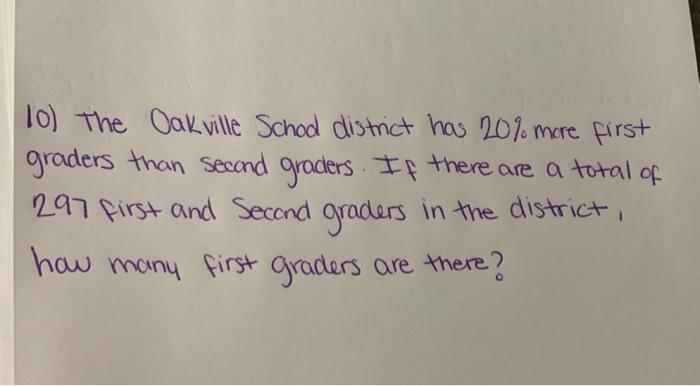 10) The Oakville School district has 20% more first
graders than second graders. If there are a total of
297 first and Second graders in the district,
how many first graders are there?